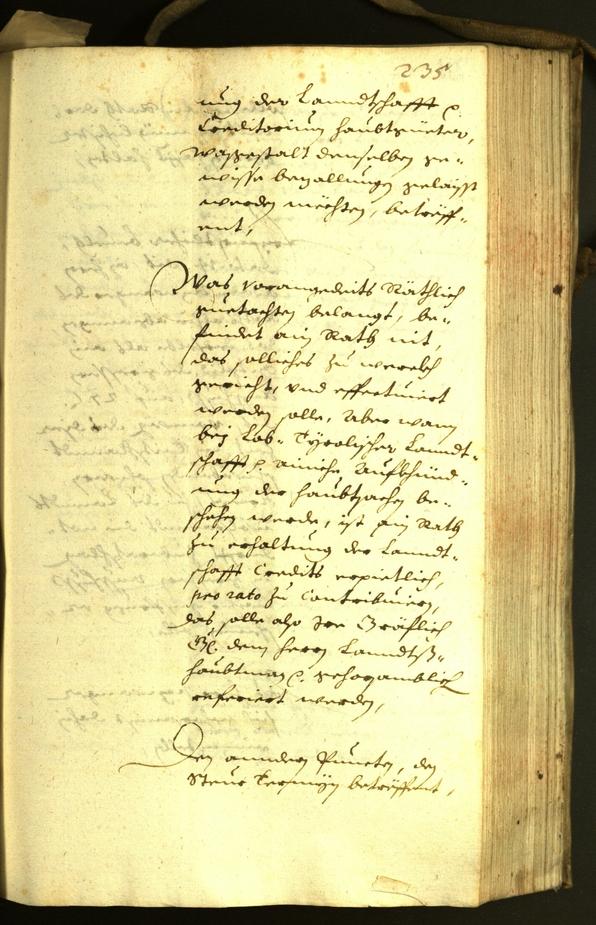 235
ung der Lanndtschafft p.
Creditorium haubtgüeter,
wasgestalt denselben ge-
wisse bezallungen gelaist
werden mechten, betreff-
ent,
Was vorangedeits Räthlich
guetachten belangt, be-
findet ain Rath nit,
das solliches zu werckh
gericht, und effectuiert
werden solle, Aber wann
bey Lob. Tyrolischer Lanndt-
schafft p. ainiche Aufkhünd-
ung der haubtsachen be-
schehen werde, ist ain Rath
zu erhaltung der Lanndt-
schafft Credits erpietlich,
pro rato zu Contribuiern,
das solle also Ire Gräflich
G. dem herrn Lanndtß-
haubtman p. gehorsamblich
referiert werden,
Den anndern Puncten, den
Steur Termin betreffent,